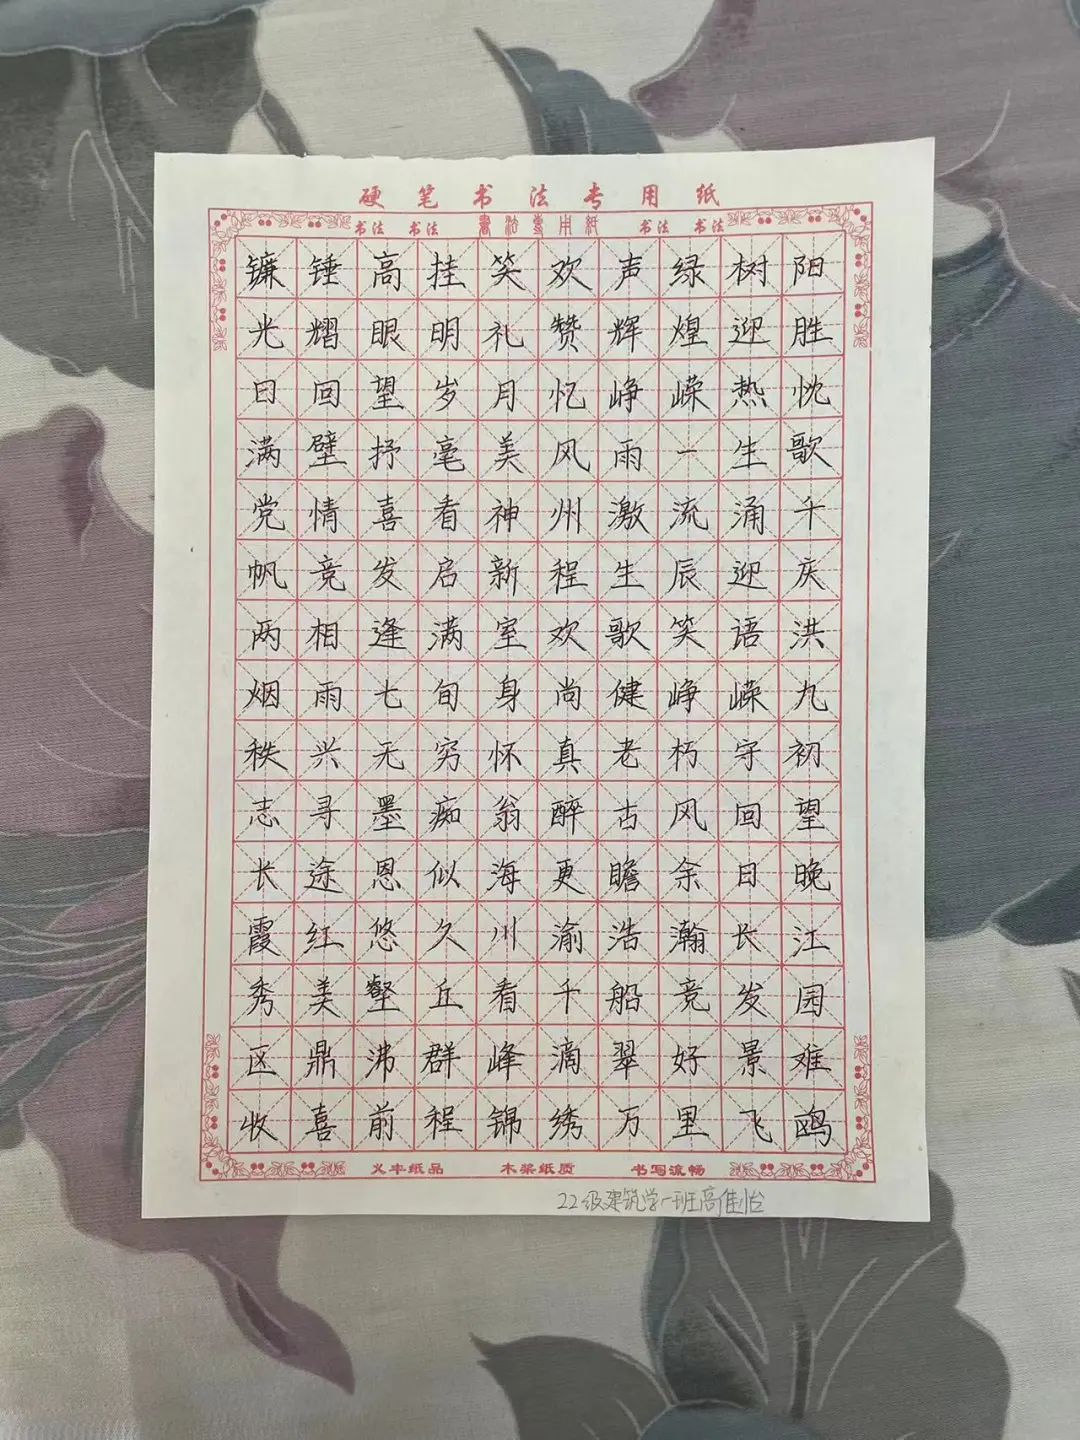 硬笔书法专用纸
书法 书法 書法專用紙 书法 书法
镰锤高挂笑欢声绿树阳
光熠眼明礼赞辉煌迎胜
日回望岁月忆峥嵘热忱
满壁抒毫美风雨一生歌
党情喜看神州激流涌千
帆竞发启新程生辰迎庆
两相逢满室欢歌笑语洪
烟雨七旬身尚健峥嵘九
秩兴无穷怀真老朽守初
志寻墨痴翁醉古风回望
长途恩似海更瞻余日晚
霞红悠久川渝浩瀚长江
秀美壑丘看千船竞发园
区鼎沸群峰滴翠好景难
收喜前程锦绣万里飞鸥
义丰纸品 木浆纸质 书写流畅
22级建筑学一班高佳怡